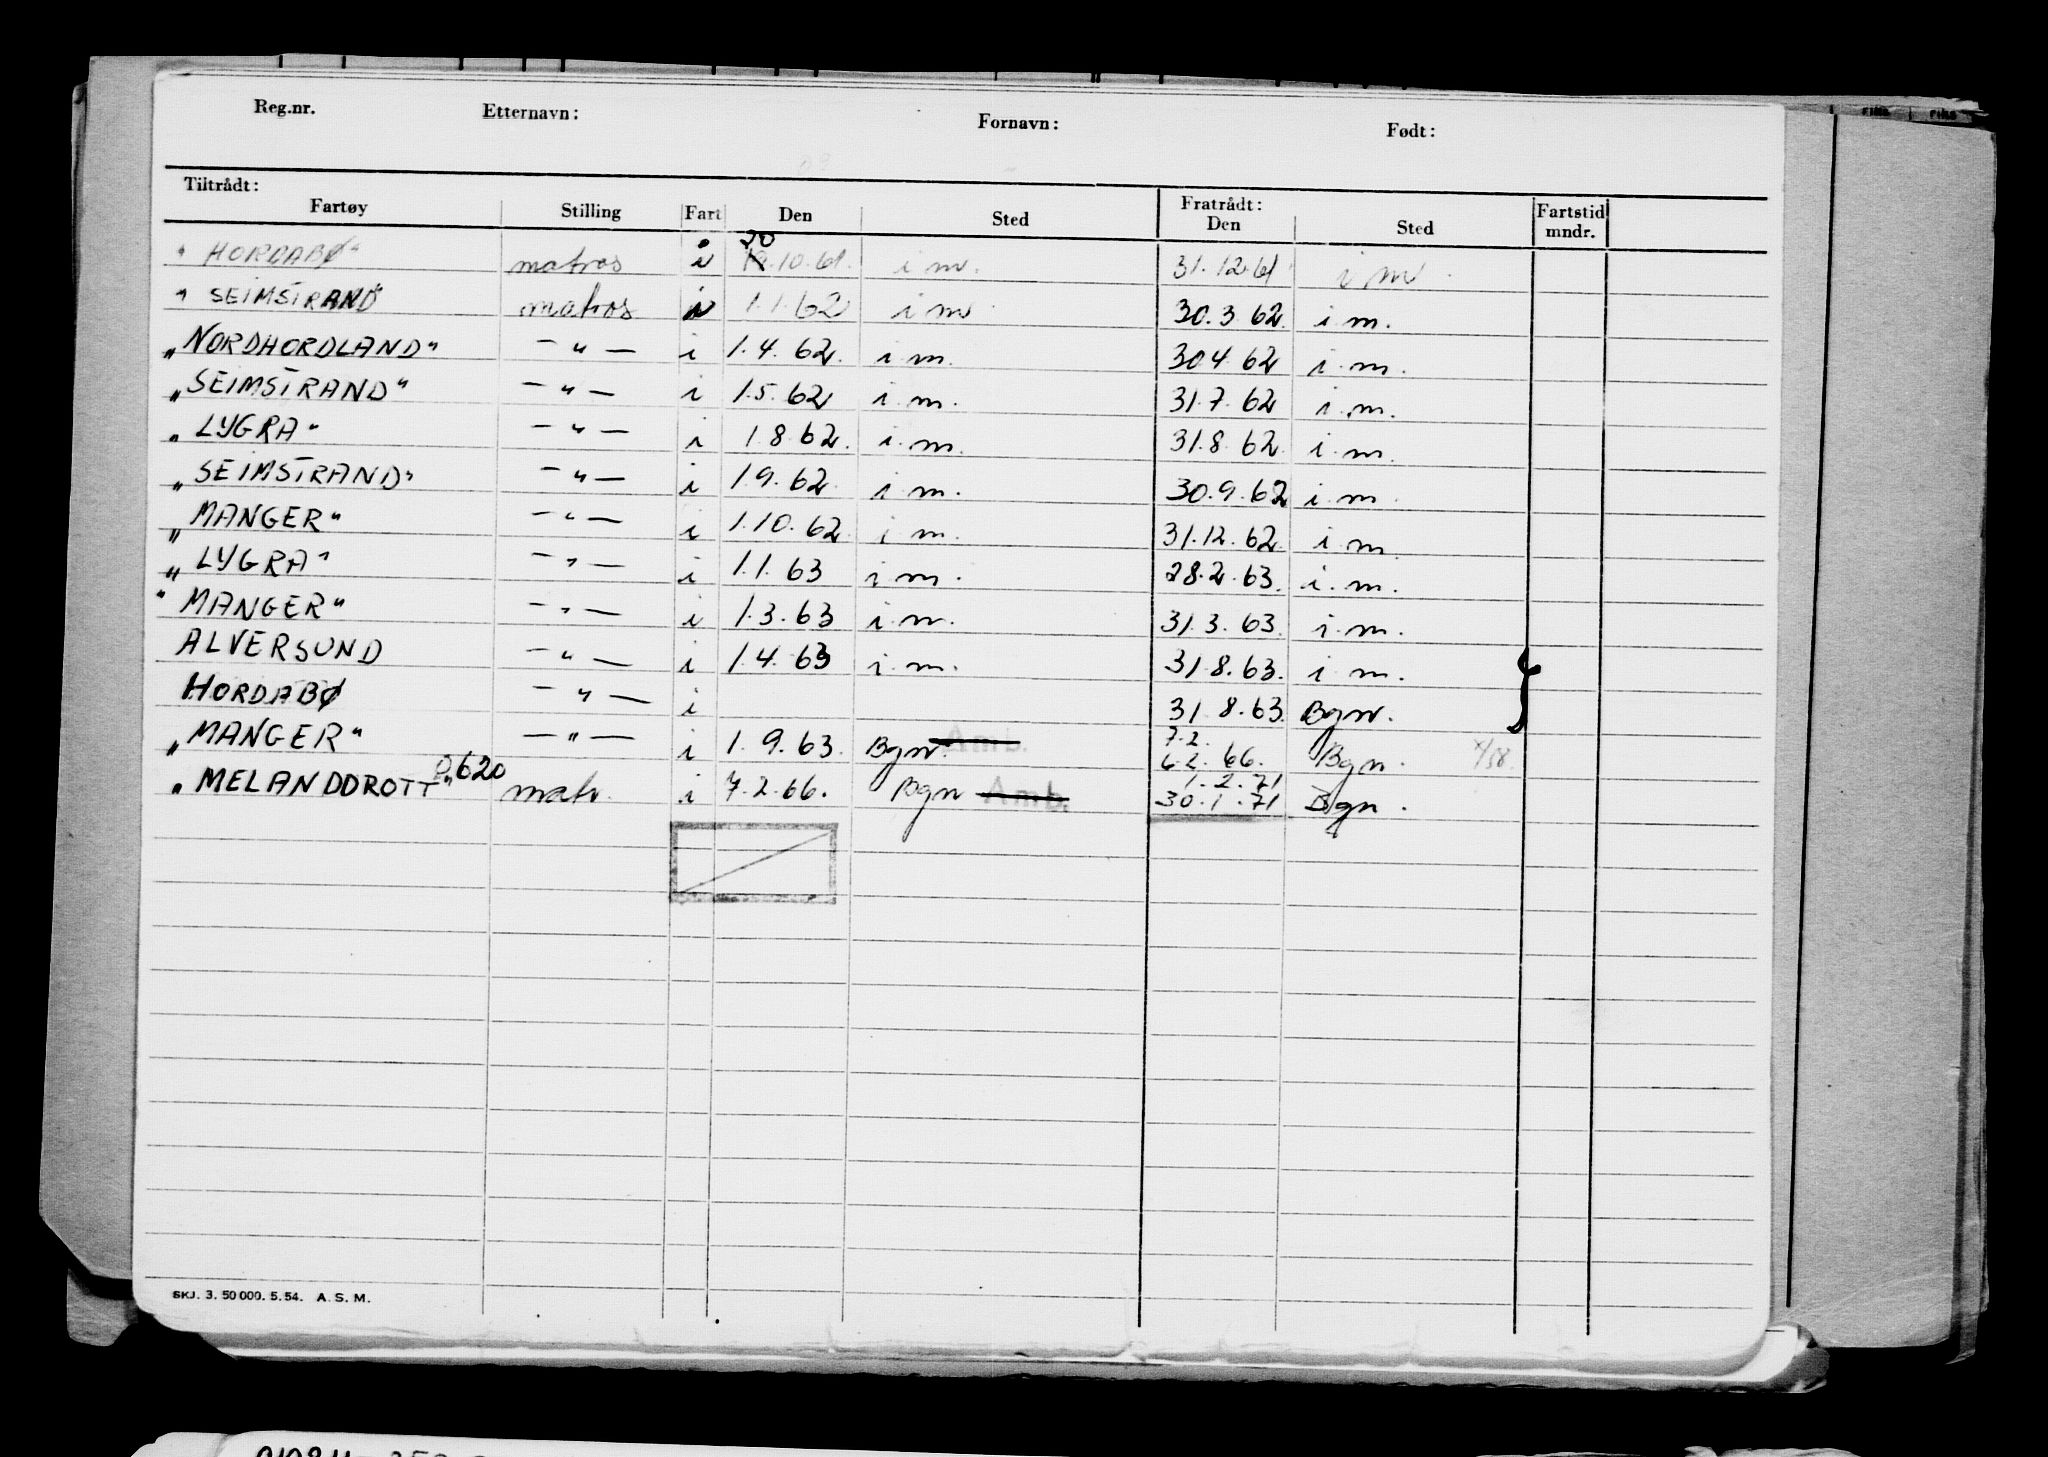 Reg.nr. Etternavn: Fornavn: Født:
Tiltrådt: Fratrådt:
Fartøy Stilling Fart Den Sted Den Sted Fartstid mndr.
" HORDABØ" matros i 20 .10.61. i m. 31.12.61 i m
" SEIMSTRAND matros i 1.1.62 i m 30.3.62. i m.
„NORDHORDLAND" — " — i 1.4.62. i m. 30.4.62 i.m.
„SEIMSTRAND" — " — i 1.5.62 i.m. 31.7.62 i.m.
„LYGRA" — " — i 1.8.62. i.m. 31.8.62. i.m.
„SEIMSTRAND" — " — i 1.9.62. i m. 30.9.62 i.m
„MANGER" — " — i 1.10.62 i m. 31.12.62. i.m.
„LYGRA" — " — i 1.1.63 i m. 28.2.63. i.m.
"MANGER" — " — i 1.3.63 i.m. 31.3.63. i.m.
ALVERSUND — " — i 1.4.63 i.m. 31.8.63. i m. }
HORDABØ — " — i 31.8.63. Bgn.
„MANGER" — " — i 1.9.63. Bgn. Amb. 7.2. 6.2.66. Bgn.
„MELANDDROTT" 0620 matr. i 7.2.66. Bgn Amb. 1.2.71 30.1.71 Bgn.
SKJ. 3. 50 000. 5. 54. A. S. M.